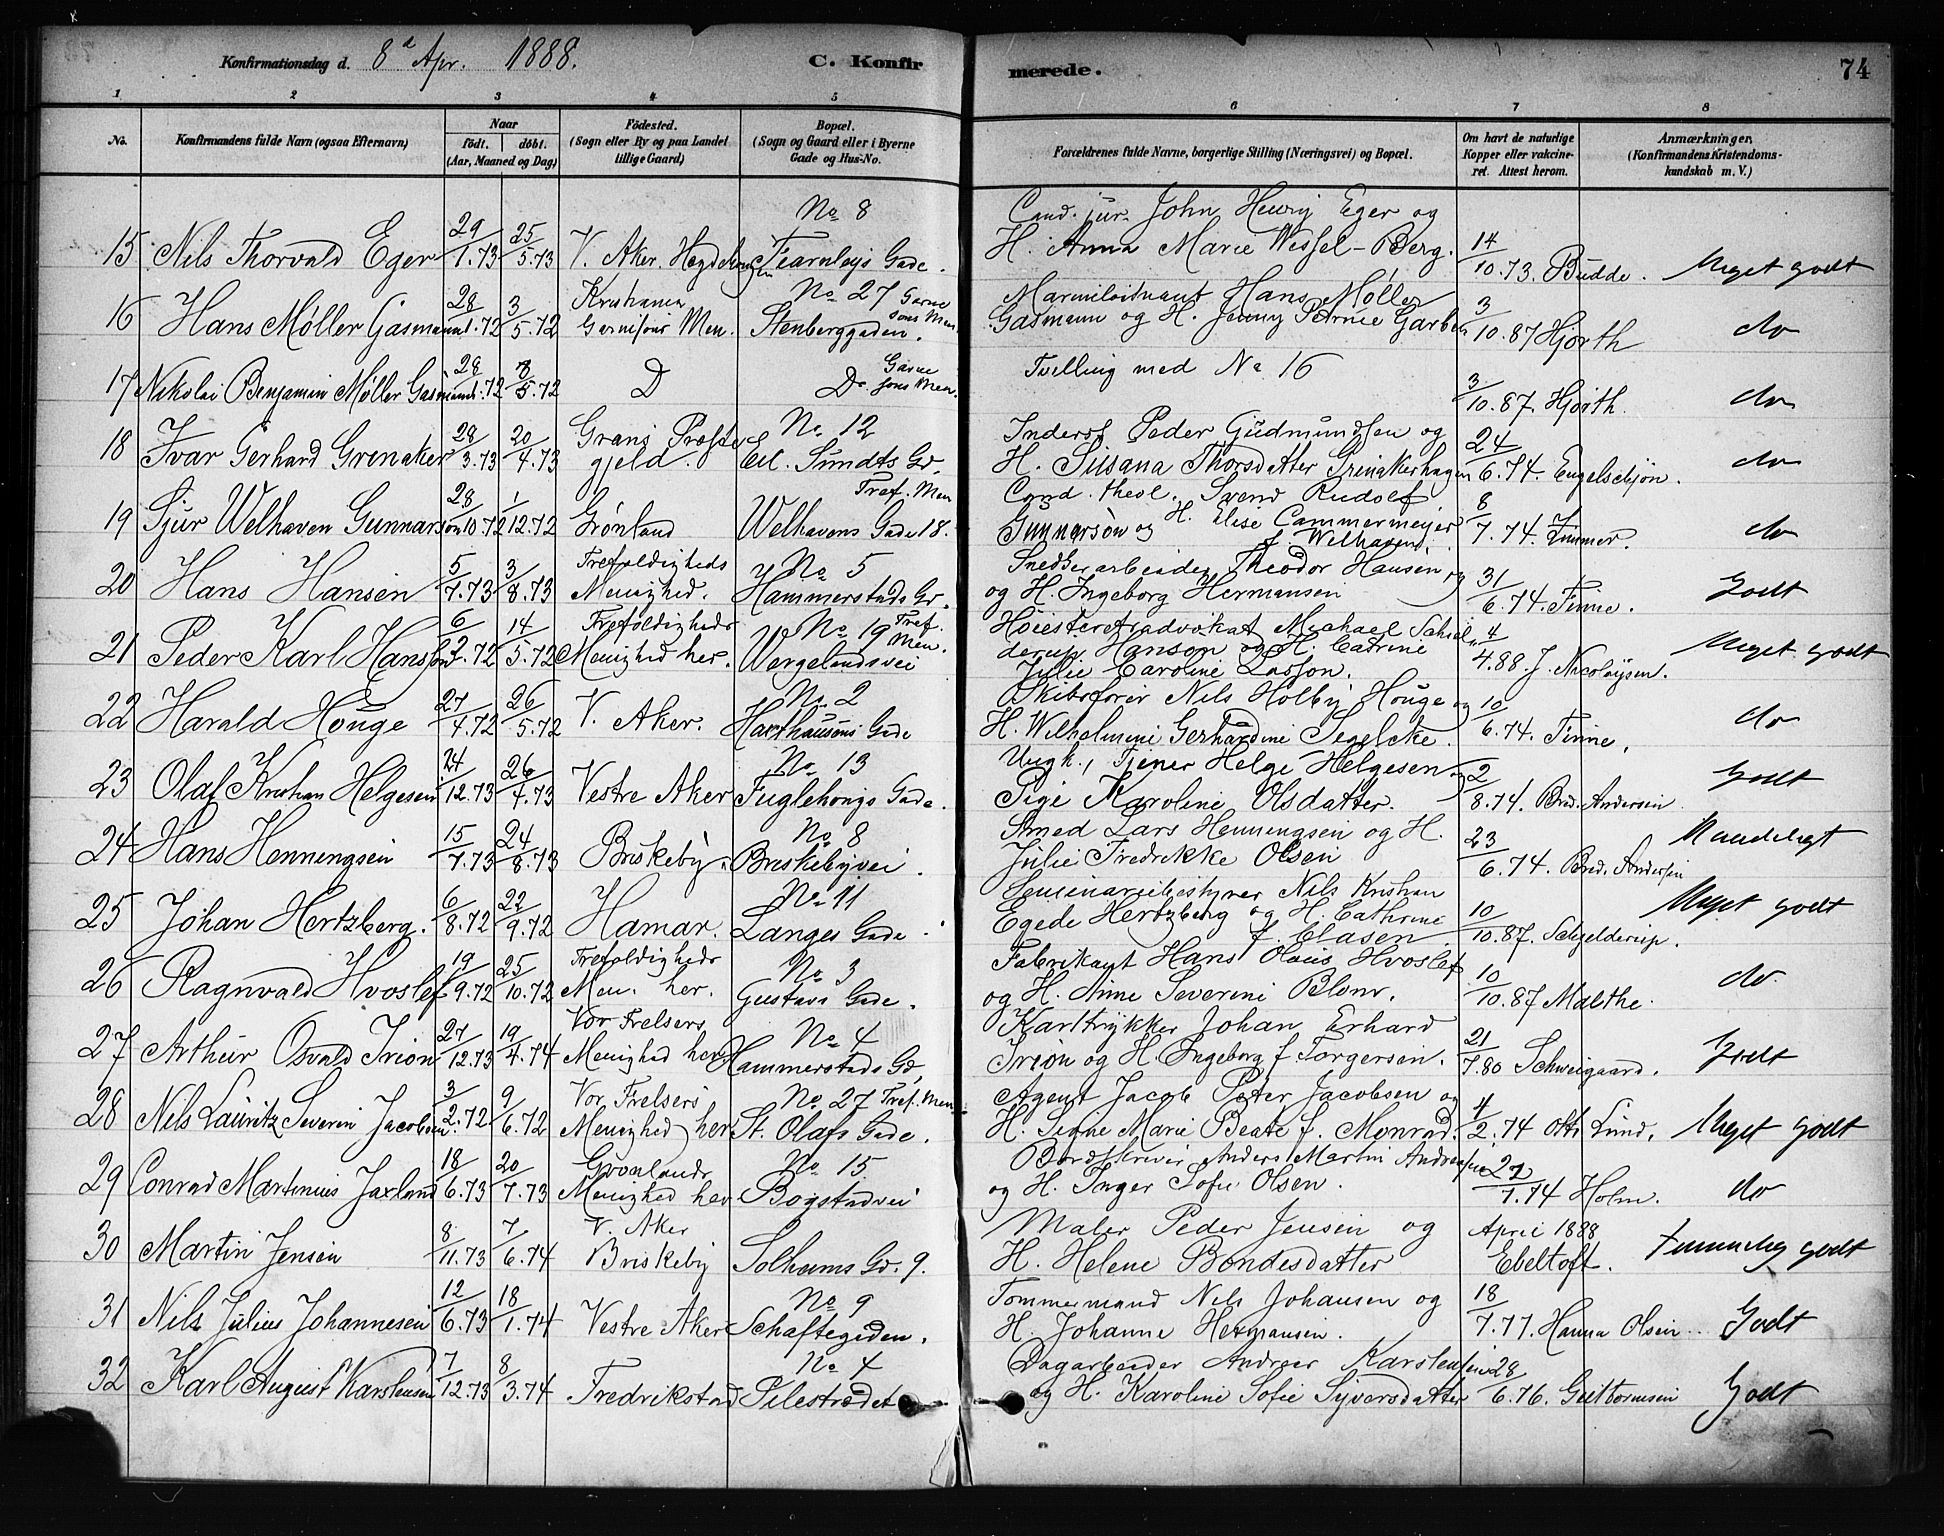 Konfirmationsdag d. 8d Apr. 1888. C. Konfirmerede. 74
1 2 3 4 5 6 7 8
No. Konfirmandens fulde Navn (ogsaa Efternavn) Naar födt. döbt. (Aar, Maaned og Dag) Födested. (Sogn eller By og paa Landet tillige Gaard) Bopæl. (Sogn og Gaard eller i Byerne Gade og Hus-No. Forældrenes fulde Navne, borgerlige Stilling (Næringsvei) og Bopæl. Om havt de naturlige Kopper eller vakcineret. Attest herom. Anmærkninger. (Konfirmandens Kristendomskundskab m. V.)
No 8 Cand. jur. John Henry Eger og
15 Nils Thorvald Eger 29/1.73 25/5.73 V. Aker. Fearnleys Gade. H. Anna Marie Wessel-Berg. 14/10.73. Budde. Meget godt
Kristiania No 27 Garnisons Men. Hans Møller
16 Hans Møller Gasmann 28/1.72 3/5.72 Garnisons Men. Stenberggaden. Gasmann og H. Jenny Petrine 3/10.87 Hjorth do
17 Nikolai Benjamin Møller Gasmann 28/1.72 3/5.72 D Do Garnisons Men. Tvilling med No 16 3/10.87. Hjorth. do
Grans Præste No. 12 Inderst Peder Gudmundsen og
18 Ivar Gerhard Grinaker 28/3.73 20/4.73 gjeld. Eil. Sundts Gd. H. Susana Thorsdatter Grinakerhagen 24/6.74. Engelschjøn. do
Tref. Men Cand. theol. Svend Rudolf
19 Sjur Welhaven Gunnarson 28/10.72 1/12.72 Grønland Welhavens Gade 18. Gunnarson og H. Elise Cammermeijer f. Welhaven. 8/7.74. Zimmer. do
Trefoldigheds No 5 Snedkerarbeider Theodor Hansen
20 Hans Hansen 5/7.73 3/8.73 Menighed. Hammerstads Gd. og H. Ingeborg Hermansen 31/6.74. Finne. Godt
Trefoldigheds No 19 Tref. Men. Høiesteretsadvokat Michael Schjel
21 Peder Karl Hansson 6/2.72 14/5.72 Menighed her. Wergelandsvei derup Hanson og H. Catrine
Julie Caroline Lasson. 4/4.88. J. Nicolaysen. Meget godt
No 2 Skibsfører Nils Holby Houge og
22 Harald Houge 27/4.72 26/5.72 V. Aker. Harthausens Gade H. Wilhelmine Gerhardine Segelcke. 10/6.74. Finne. do
No. 13 Ungk., Tjener Helge Helgesen og
23 Olaf Kristian Helgesen 24/12.73 26/4.73 Vestre Aker Fuglehougs Gade. Pige Karoline Olsdatter. 2/8.74. Bred. Andersen Godt
No. 8 Smed Lars Henningsen og H.
24 Hans Henningsen 15/7.73 24/8.73 Briskeby. Briskebyvei. Julie Fredrikke Olsen 23/6.74. Bred. Andersen Maadeligt
No. 11 Seminariebestyrer Nils Kristian
25 Johan Hertzberg. 6/8.72 22/9.72 Hamar. Langes Gade. Egede Hertzberg og H. Cathrine
f. Clasen. 10/10.87. Schjelderup. Meget godt
Trefoldigheds No. 3 Fabrikant Hans Hvoslef
26 Ragnvald Hvoslef 19/9.72 25/10.72 Men. her. Gustavs Gade. og H. Anne Severine Blom. 10/10.87 Malthe. do.
Vor Frelsers No. 4 Karttrykker Johan Erhard
27 Arthur Osvald Irion 27/12.73 19/4.74 Menighed her Hammerstads Gd. Irion og H. Ingeborg f Torgersen. 21/7.80 Schweigaard. Godt
Vor Frelsers No. 27 Tref. Men. Agent Jacob Peter Jacobsen og
28 Nils Lauritz Severin Jacobsen 3/2.72 9/6.72 Menighed her St. Olafs Gade. H. Signe Marie Beate f. Monrad. 4/2.74 Otto Lund. Meget godt
Grønlands No. 15 Bordskriver Anders Martin Andreasen
29 Conrad Martinius Jaxland 18/6.73 20/7.73 Menighed her Bogstadvei og H. Inger Sofie Olsen. 7.74 Holm. do
V. Aker Maler Peder Jensen og April 1888
30 Martin Jensen 8/11.73 7/6.74 Briskeby Solheims Gd. 9. H. Helene Bondesdatter Ebeltoft. temmelig godt
No. 9 Tømmermand Nils Johansen og
31 Nils Julius Johannesen 12/6.73 18/1.74 Vestre Aker Schaftegiden. H. Johanne Hermansen. 18/7.77. Hanna Olsen. Godt
No 4 Dagarbeider Andreas Karstensen
32 Karl August Karstensen 7/12.73 8/3.74 Fredrikstad Pilestrædet og H. Karoline Sofie Syversdatter 28/6.76. Guttormsen Godt